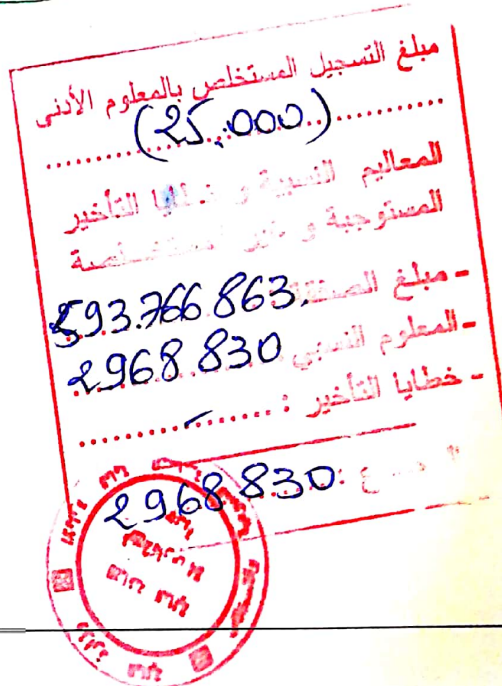 مبلغ التسجيل المستخلص بالمعلوم الأدنى
(25.000)
المعاليم النسبية و خطايا التأخير
المستوجبة و غير المستخلصة
- مبلغ الصفقة 593.766 863.
- المعلوم النسبي 2968 830
- خطايا التأخير : -
2968 830 :